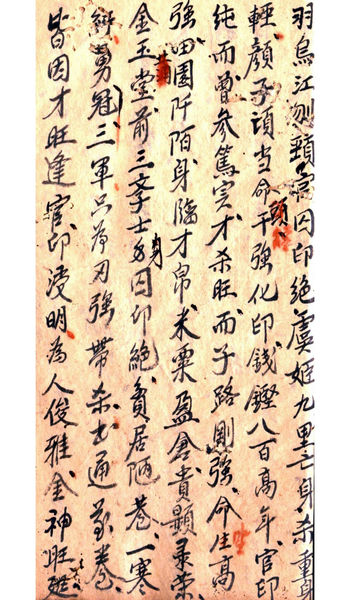 羽烏江刎頸㝠因印絶虞姬九里亡身杀重身
輕顔子頭当命干強化印錢鏗八百高年官印
純而曾参篤实才杀旺而子路剛強命生高
強田園阡陌身臨才帛米粟盈倉貴顯承荣
金玉堂前三文子士身因印絶貧居陋巷一寒
勇冠三軍只為刃強帶杀士通万巻
皆因才旺逢官印凌明為人俊雅金神旺